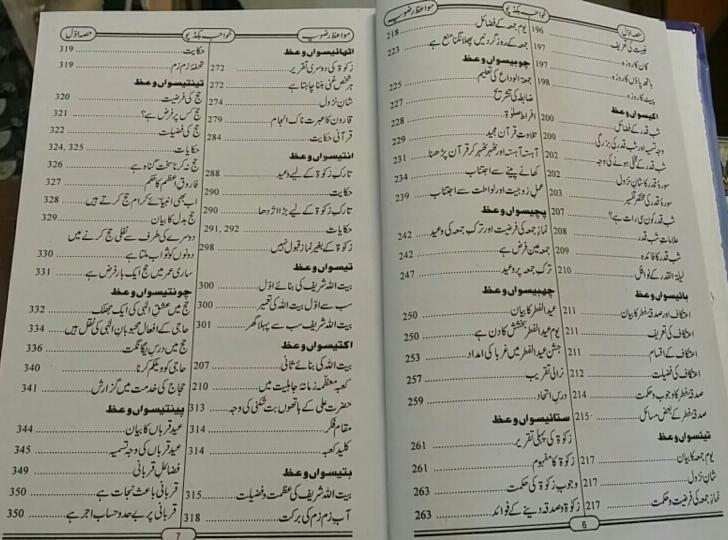 حصہ اوّل
خواجہ بکڈپو
مواعظ رضویہ
غیبت کی تعریف 196
کان کا روزہ 197
ہاتھ پاؤں کا روزہ 197
پیٹ کا روزہ 198
اکیسواں وعظ
شب قدر کے فضائل 200
وجہ تسمیہ اور شب قدر کی بزرگی 200
شب قدر کے مخفی ہونے کی وجہ 202
سورۂ قدر کا شان نزول 202
سورۂ قدر کی مختصر تفسیر 203
شب قدر کون سی رات ہے؟ 207
علامات شب قدر 208
شب قدر کا فائدہ 209
لیلۃ القدر کے نوافل 210
بائیسواں وعظ
اعتکاف اور صدقۂ فطر کا بیان 211
اعتکاف کی تعریف 211
اعتکاف کے اقسام 211
اعتکاف کی فضیلت 212
صدقۂ فطر کا وجوب و حکمت 214
صدقۂ فطر کے بعض مسائل 215
تیئسواں وعظ
یوم جمعہ کا بیان 217
شان نزول 217
نماز جمعہ کی فرضیت و حکمت 217
یوم جمعہ کے فضائل 218
جمعہ کے روز گردنیں پھلانگنا منع ہے 223
چوبیسواں وعظ
جمعۃ الوداع کی تعلیم 225
ضابطہ کی تشریح 227
افراط صلوٰۃ 228
تلاوت قرآن مجید 229
آہستہ آہستہ اور ٹھہر ٹھہر کر قرآن پڑھنا 231
کھانے پینے سے اجتناب 234
عمل زوجیت اور لواطت سے اجتناب 239
پچیسواں وعظ
نماز جمعہ کی فرضیت اور ترک جمعہ کی وعید 242
جمعہ عین فرض ہے 242
ترک جمعہ پر وعید 247
چھبیسواں وعظ
عید الفطر کا بیان 250
یوم عید الفطر بخشش کا دن ہے 250
جشن عید الفطر میں غربا کی امداد 253
نرالی تقریب 257
درس اتحاد 259
ستائیسواں وعظ
زکوٰۃ کی پہلی تقریر 261
زکوٰۃ کا مفہوم 261
وجوب زکوٰۃ کی حکمت 263
زکوٰۃ و صدقہ دینے کے فوائد 263
6
حصہ اوّل
خواجہ بکڈپو
مواعظ رضویہ
اٹھائیسواں وعظ
زکوٰۃ کی دوسری تقریر 272
ہر شخص غنی بننا چاہتا ہے 272
شان نزول 274
قارون کا عبرت ناک انجام 279
قرآنی حکایت 284
انتیسواں وعظ
تارک زکوٰۃ کے لیے وعید 288
حکایت 290
تارک زکوٰۃ کے لیے بڑا اژدھا 290
حکایات 291, 292
زکوٰۃ کے بغیر نماز قبول نہیں 298
تیسواں وعظ
بیت اللہ شریف کی بنائے اوّل 300
سب سے اوّل بیت اللہ کی تعمیر 300
بیت اللہ شریف سب سے پہلا گھر 301
اکتیسواں وعظ
بیت اللہ کی بنائے ثانی 207
کعبہ معظمہ زمانۂ جاہلیت میں 210
حضرت علی کے ہاتھوں بت شکنی کی وجہ 313
مقام فکر 314
کلید کعبہ 314
بتیسواں وعظ
بیت اللہ شریف کی عظمت و فضیلت 315
آب زم زم کی برکت 318
حکایت 319
تحفۂ زم زم 319
تینتیسواں وعظ
حج کی فرضیت 320
حج کس پر فرض ہے؟ 321
حج کی فضیلت 322
حکایات 324, 325
حج نہ کرنا سخت گناہ ہے 326
فاروق اعظم کا حکم 327
اب بھی انبیائے کرام حج کرتے ہیں 328
حج بدل کا بیان 329
دوسرے کی طرف سے نفلی حج کرنے میں
دونوں کو ثواب ملتا ہے 330
ساری عمر میں حج ایک بار فرض ہے 331
چونتیسواں وعظ
حج میں عشق الٰہی کی ایک جھلک 332
حاجی کے افعال محبوبان الٰہی کی نقل ہیں 334
حج میں درس یگانگت 336
حاجی کو ویلکم کرنا 340
حجاج کی خدمت میں گزارش 341
پینتیسواں وعظ
عید قرباں کا بیان 344
عید قرباں کی وجہ تسمیہ 345
فضائل قربانی 349
قربانی باعث نجات ہے 350
قربانی پر بے حد و حساب اجر ہے 350
7